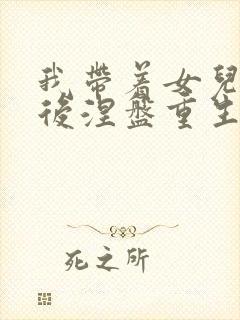 我带着女兒
後涅盤重生
死之所